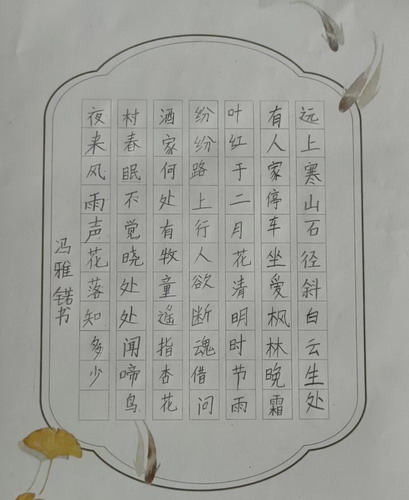 远上寒山石径斜白云生处
有人家停车坐爱枫林晚霜
叶红于二月花清明时节雨
纷纷路上行人欲断魂借问
酒家何处有牧童遥指杏花
村春眠不觉晓处处闻啼鸟
夜来风雨声花落知多少
冯雅锘书